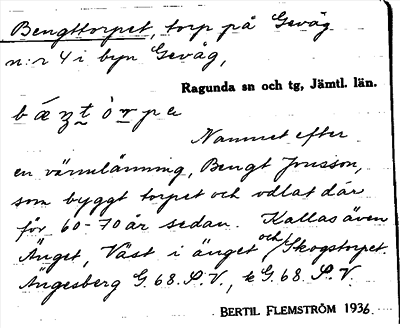 Bengttorpet, torp på Gevåg
n:r 4 i byn Gevåg,
Ragunda sn och tg, Jämtl. län.
Namnet efter
en värmlänning, Bengt Jonsson,
som byggt torpet och odlat där
för 60-70 år sedan. Kallas även
Änget, Väst i änget och Skogstorpet.
Ängesberg G. 68. S.V., G. 68. S.V.
BERTIL FLEMSTRÖM 1936.